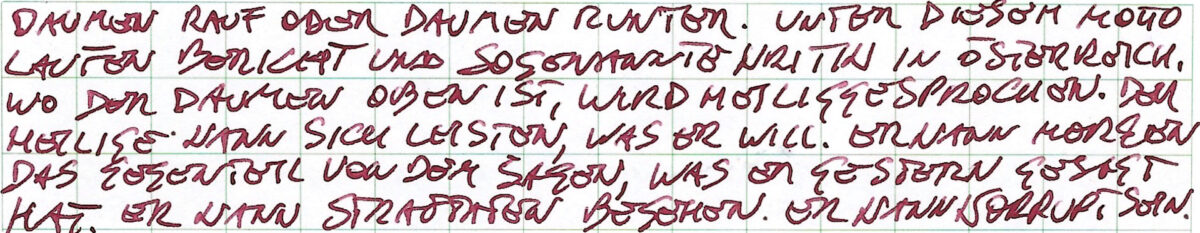 DAUMEN RAUF ODER DAUMEN RUNTER. UNTER DIESEM MOTTO
LAUFEN BERICHT UND SOGENANNTE KRITIK IN ÖSTERREICH.
WO DER DAUMEN OBEN IST, WIRD HEILIGGESPROCHEN. DER
HEILIGE KANN SICH LEISTEN, WAS ER WILL. ER KANN MORGEN
DAS GEGENTEIL VON DEM SAGEN, WAS ER GESTERN GESAGT
HAT. ER KANN STRAFTATEN BEGEHEN. ER KANN KORRUPT SEIN.